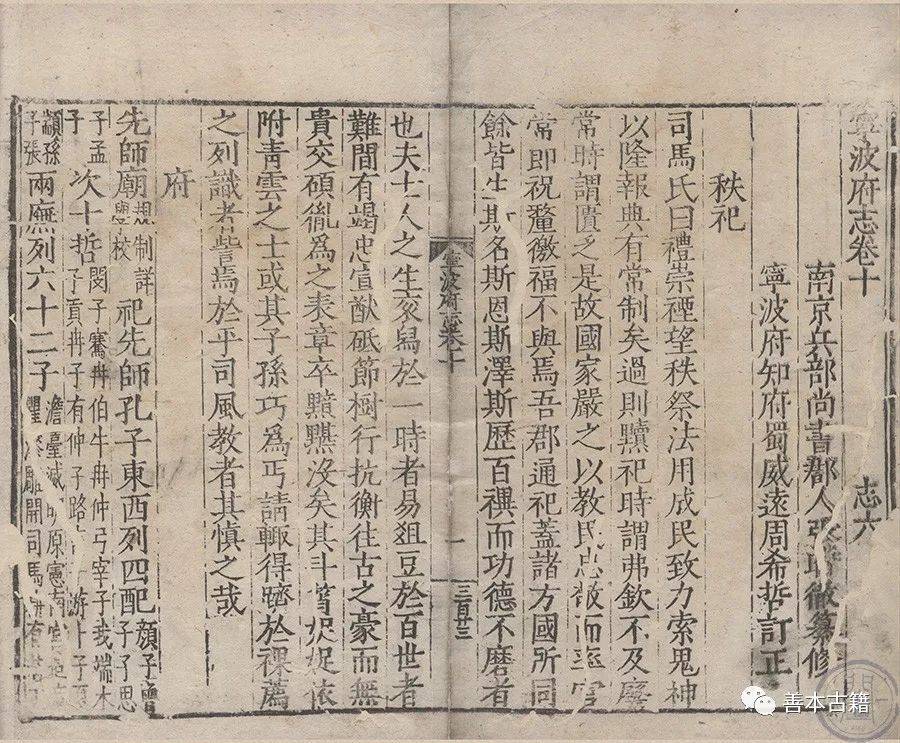 寧波府志卷十　志六
南京兵部尚書郡人張時徹纂修
寧波府知府蜀威遠周希哲訂正
秩祀
司馬氏曰禮崇禋望秩祭法用成民致力索鬼神
以隆報典有常制矣過則黷祀時謂弗欽不及廢
常時謂匱乏是故國家嚴之以教民忠敬而率官
常即祝釐徼福不與焉吾郡通祀蓋諸方國所同
餘皆生斯名斯恩斯澤斯歷百禩而功德不磨者
寧波府志卷十
一
三百廿三
也夫士人之生褒舄於一時者易俎豆於百世者
難間有竭忠宣猷砥節樹行抗衡往古之豪而無
貴交碩胤為之表章卒黯黮沒矣其斗筲捉捉依
附青雲之士或其子孫巧為丐請輙得躋於祼薦
之列識者訾焉於乎司風教者其慎之哉
府
先師廟規制詳學校祀先師孔子東西列四配顏子曾子子思
子孟子次十哲閔子騫冉伯牛冉仲弓宰子我端木子貢冉子有仲子路游卜子夏
顓孫子張兩廡列六十二子澹臺滅明原憲南宮瞿漆雕開司馬
善本古籍